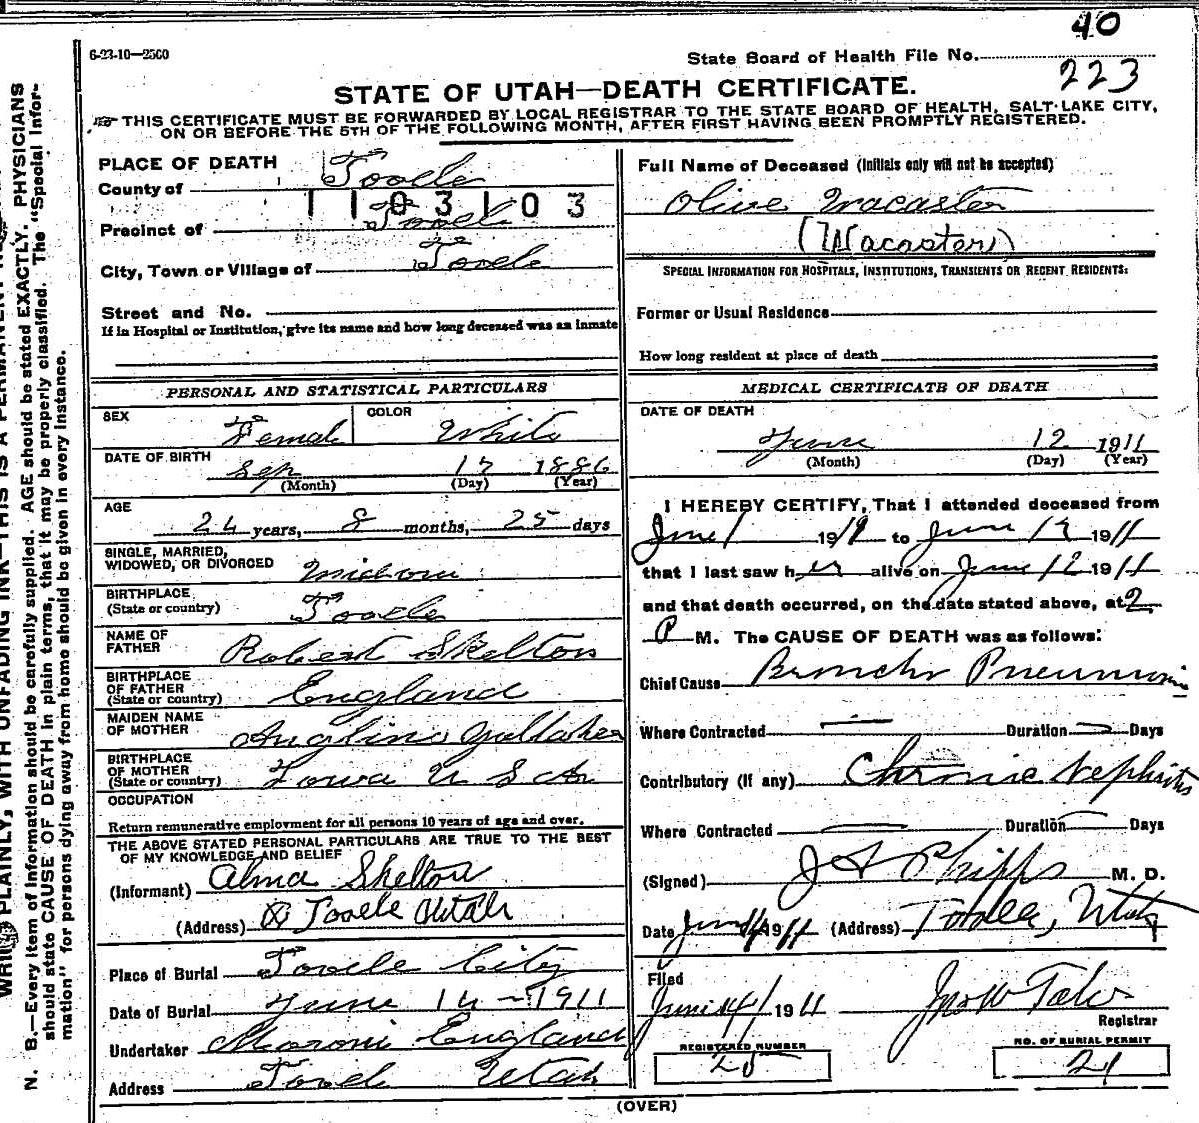 40
6-23-10—2500
State Board of Health File No. 223
STATE OF UTAH—DEATH CERTIFICATE.
THIS CERTIFICATE MUST BE FORWARDED BY LOCAL REGISTRAR TO THE STATE BOARD OF HEALTH, SALT LAKE CITY,
ON OR BEFORE THE 5TH OF THE FOLLOWING MONTH, AFTER FIRST HAVING BEEN PROMPTLY REGISTERED.
PLACE OF DEATH
County of Tooele
1103103
Precinct of Tooele
City, Town or Village of Tooele
Street and No.
If in Hospital or Institution, give its name and how long deceased was an inmate
Full Name of Deceased (Initials only will not be accepted)
Olive Wacaster
(Wacaster)
SPECIAL INFORMATION FOR HOSPITALS, INSTITUTIONS, TRANSIENTS OR RECENT RESIDENTS:
Former or Usual Residence
How long resident at place of death
PERSONAL AND STATISTICAL PARTICULARS
SEX Female COLOR White
DATE OF BIRTH
Sep 17 1886
(Month) (Day) (Year)
AGE
24 years, 8 months, 25 days
SINGLE, MARRIED,
WIDOWED, OR DIVORCED
BIRTHPLACE
(State or country) Tooele
NAME OF
FATHER Robert Skelton
BIRTHPLACE
OF FATHER
(State or country) England
MAIDEN NAME
OF MOTHER
BIRTHPLACE
OF MOTHER
(State or country) Iowa U S A
OCCUPATION
Return remunerative employment for all persons 10 years of age and over.
THE ABOVE STATED PERSONAL PARTICULARS ARE TRUE TO THE BEST
OF MY KNOWLEDGE AND BELIEF
(Informant) Alma Skelton
(Address) Tooele Utah
Place of Burial Tooele City
Date of Burial June 14-1911
Undertaker Moroni England
Address Tooele Utah
MEDICAL CERTIFICATE OF DEATH
DATE OF DEATH
June 12 1911
(Month) (Day) (Year)
I HEREBY CERTIFY, That I attended deceased from
June 1 1911 to June 12 1911
that I last saw her alive on June 12 1911
and that death occurred, on the date stated above, at 2
P M. The CAUSE OF DEATH was as follows:
Chief Cause Broncho Pneumonia
Where Contracted — Duration Days
Contributory (If any) Chronic Nephritis
Where Contracted — Duration — Days
(Signed) J A Phipps M. D.
Date June 14 1911 (Address) Tooele, Utah
Filed
June 14 1911
Registrar
REGISTERED NUMBER
NO. OF BURIAL PERMIT
21
(OVER)
PLAINLY, WITH UNFADING INK—THIS IS A PERMANENT
N. B.—Every item of information should be carefully supplied. AGE should be stated EXACTLY. PHYSICIANS
should state CAUSE OF DEATH in plain terms, that it may be properly classified. The "Special Infor-
mation" for persons dying away from home should be given in every instance.